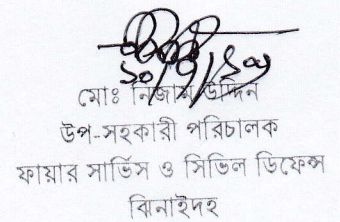 মোঃ নিজাম উদ্দিন
উপ-সহকারী পরিচালক
ফায়ার সার্ভিস ও সিভিল ডিফেন্স
ঝিনাইদহ